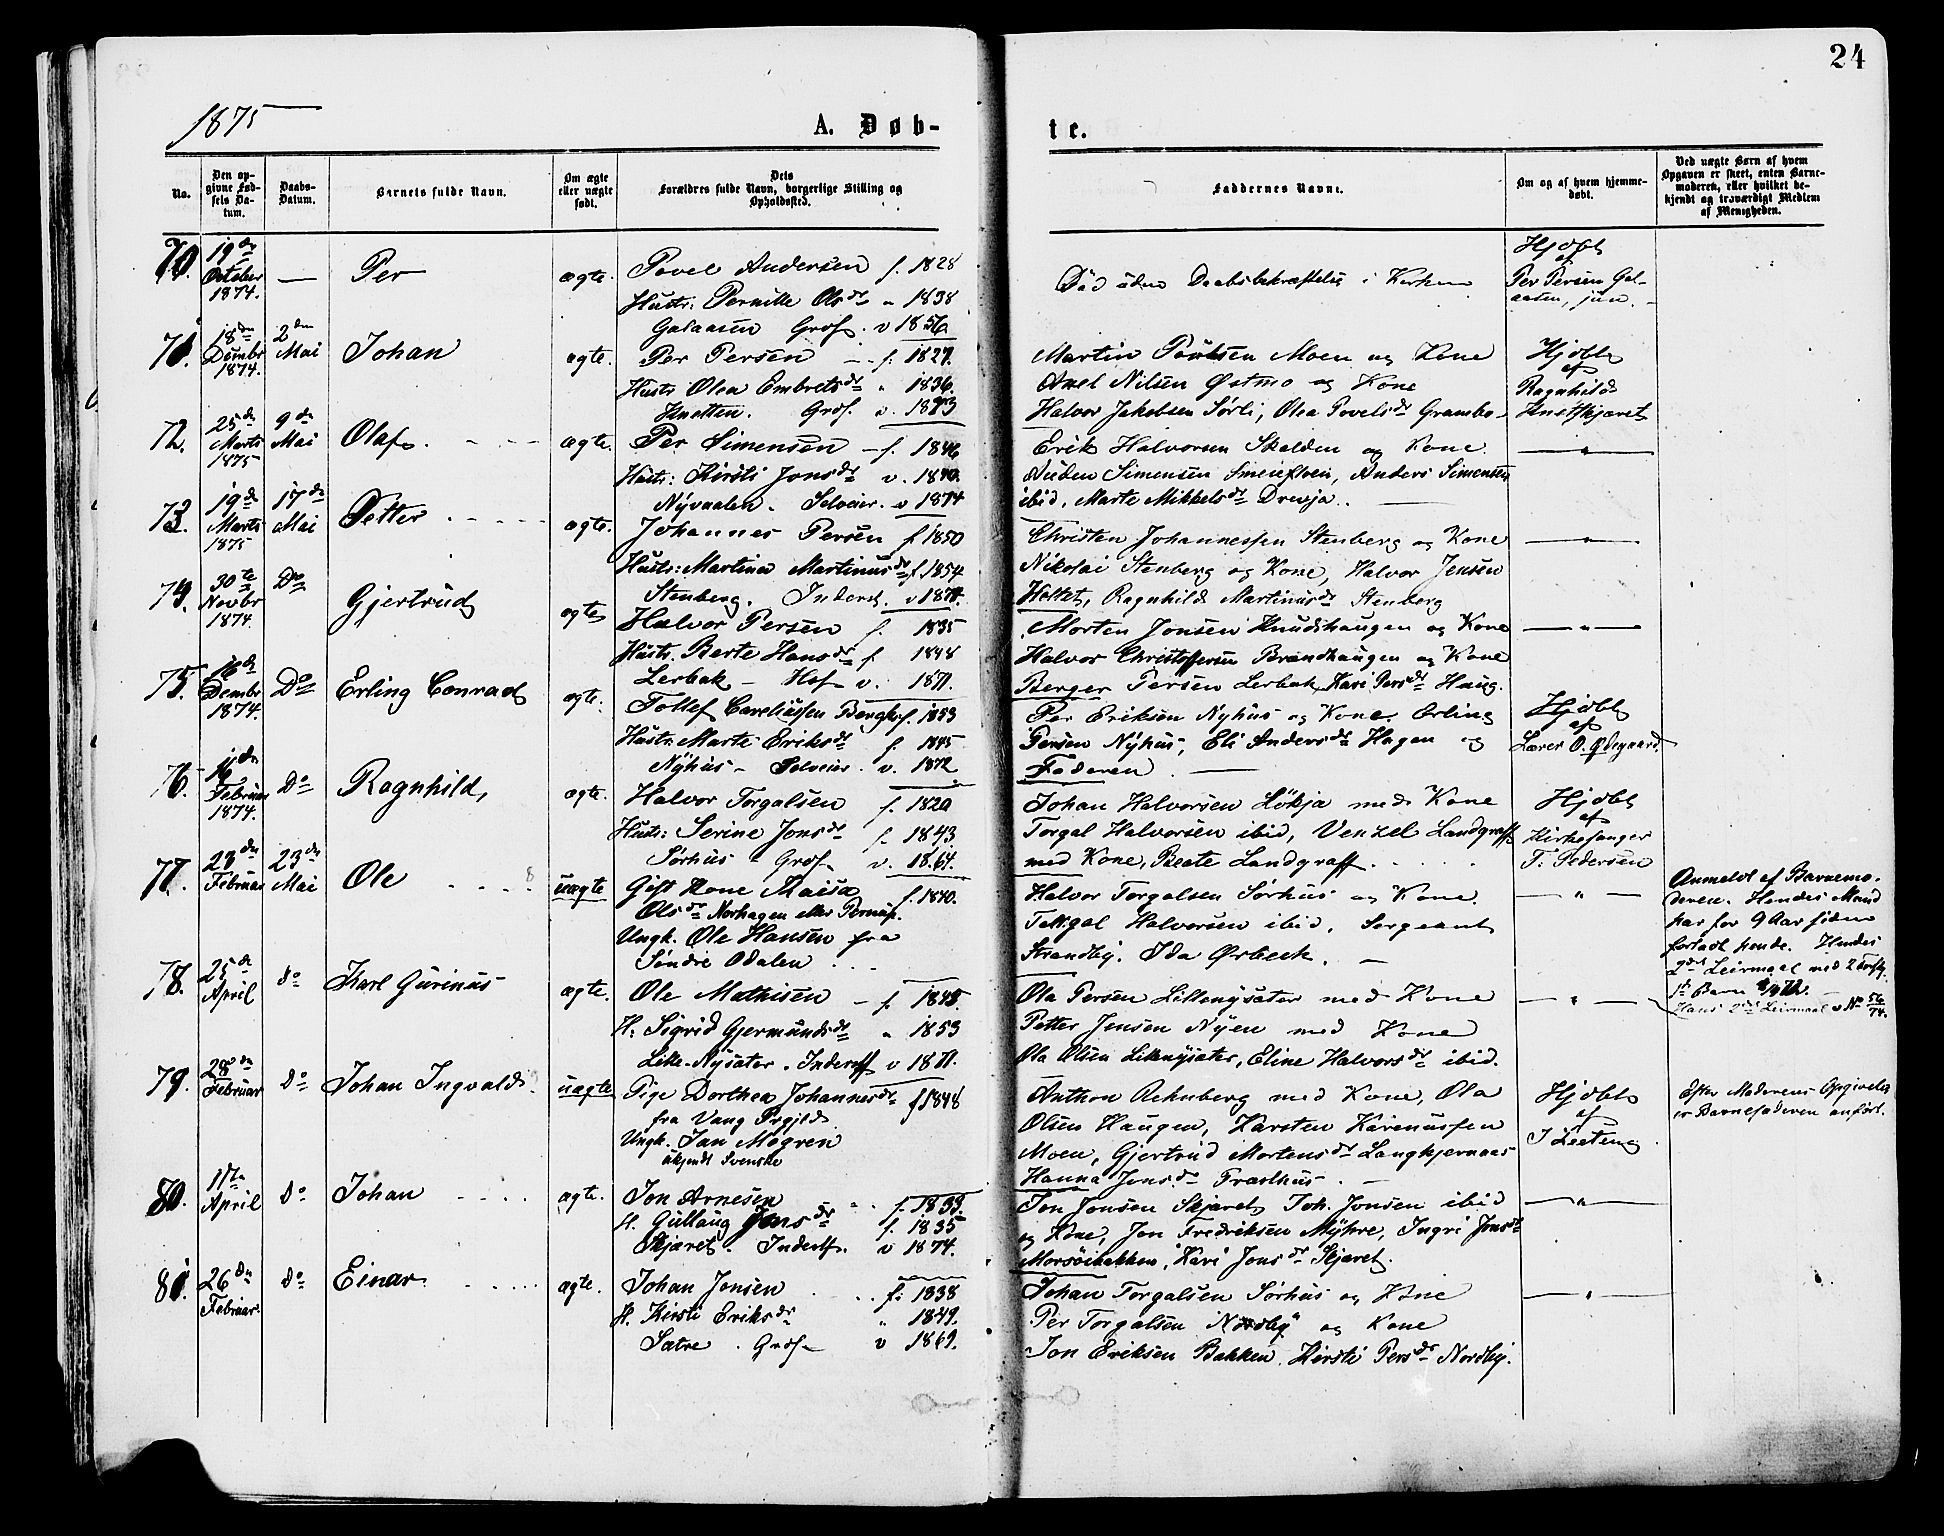 24
1875
A. Døb-
te.
No.
Den opgivne Fødsels Datum.
Daabs-Datum.
Barnets fulde Navn.
Om ægte eller uægte født.
Dets Forældres fulde Navn, borgerlige Stilling og Opholdssted.
Faddernes Navne.
Om og af hvem hjemmedøbt.
Ved uægte Børn af hvem Opgaven er skeet, enten Barnemoderen, eller hvilket bekjendt og troværdigt Medlem af Menigheden.
70. 19de October 1874. — Per ægte. Povel Andersen f. 1828
Hustr: Pernille Olsdr " 1838
Galaasen Grdf. v 1856
Død uden Daabsbekræftelse i Kirken
Hjdbt af Per Persen Galaasen, jun.
71. 18de Dcmbr 1874. 2den Mai Johan ægte. Per Persen f. 1827.
Hustr Olea Embretsdr " 1836.
Knotten. Grdf. v.
Martin Poulsen Moen og Kone
Axel Nilsen Østmo og Kone
Halvor Jakobsen Sørli, Olea Povelsdr Grambo
Hjdbt af Ragnhild
72. 25de Marts 1875 9de Mai Olaf. ægte. Per Simensen f. 1846
Hustr: Kirsti Jonsdr v.
Nyvaalen. Selveier. v 1874
Erik Halvorsen Skalden og Kone.
Auden Simensen Smeiestuen, Anders Simensen
ibid, Marte Mikkelsdr Drevja.
— " —
73. 19de Marts 1875 17de Mai Petter ægte. Johannes Persen f 1850
Hustr: Martina Martinusdr f. 1854
Stenberg. Inderst. v
Christen Johannessen Stenberg og Kone
Nikolai Stenberg og Kone, Halvor Jensen
Holtet, Ragnhild Martinusdr Stenberg
— " —
74. 30te Novbr 1874. Do Gjertrud ægte Halvor Persen f. 1835
Hustr. Berte Hansdr f 1848
Lerbak — Hof v. 1871.
Morten Jonsen Knudshaugen og Kone
Halvor Christoffersen Brændhaugen og Kone
Berger Persen Lerbak, Kari Persdr Haug.
— " —
75. 16de Dcmbr 1874. Do Erling Conrad ægte. Tollef Careliussen Berg f. 1853
Hustr: Marte Eriksdr f. 1845
Nyhus — Selveier. v. 1872
Per Eriksen Nyhus og Kone. Erling
Persen Nyhus, Eli Andersdr Hagen og
Faderen. —
Hjdbt af Lærer O. Ødegaard.
76. Februar 1874. Do Ragnhild, ægte. Halvor Torgalsen f. 1820
Hustr: Serine Jonsdr f. 1843
Sørhus Grdf v. 1864.
Johan Halvorsen Løkja med Kone
Torgal Halvorsen ibid, Venzel Landgraff
med Kone, Beate Landgraff.
Hjdbt af Kirkesanger T. Pedersen
77. 23de Februar 23de Mai Ole uægte Gift Kone Maisa f. 1840.
Olsdr Norhagen eller
Ungk. Ole Hansen fra
Søndre Odalen
Halvor Torgalsen Sørhus og Kone.
Torgal Halvorsen ibid, Sergeant
Strandby. Ida Ørbeck. —
— " —
Anmeldt af Barnemoderen. Hendes Mand
har for 9 Aar siden
forladt hende. Hendes
2det Leirmaal med 2
1ste Barn
Hans 2det Leirmaal v No 56/74.
78. 25de April do Karl Gurinus ægte. Ole Mathisen f. 1848.
H. Sigrid Gjermundsdr " 1853
Lille-Nysæter. Inderst v 1871.
Ola Persen Lillenysæter med Kone
Petter Jensen Nyen med Kone
Ola Olsen Lillenysæter, Eline Halvorsdr ibid.
— " —
79. 28de Februar do Johan Ingvald. uægte Pige Dorthea Johannesdr f. 1848
fra Vang Prgjld.
Ungk. Jan Mogren
ukjendt Svenske
Anthon Rehnberg med Kone, Ola
Olsen Haugen, Karsten Karenussen
Moen, Gjertrud Mortensdr Langkjernaas
Hanna Jonsdr Fræsthus. —
Hjdbt af
Efter Moderens Opgivelse
er Barnefaderen anført.
80. 17de April do Johan ægte. Jon Arnesen f. 1833.
H. Gullaug Jonsdr f. 1835
Skjæret. Inderst. v 1874.
Jon Jonsen Skjæret, Joh. Jonsen ibid
og Kone, Jon Fredriksen Myhre, Ingri Jonsdr
Morsøibakken, Kari Jonsdr Skjæret.
— " —
81. 26de Februar. do Einar. ægte. Johan Jonsen f. 1838
H. Kirsti Eriksdr " 1849.
Sætre. Grdf v 1869.
Johan Torgalsen Sørhus og Kone
Per Torgalsen Nordby og Kone
Jon Eriksen Bakken. Kirsti Persdr Nordby.
— " —